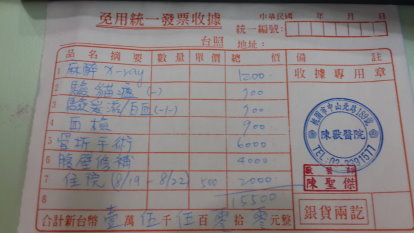 免用統一發票收據
中華民國 年 月 日
統一編號:
台照 地址:
品名 摘要 數量 單價 總價 備註
1 麻醉 X-ray 1200
2 驗 (-) 700
3 (-1-) 700
4 血檢 900
5 骨折手術 6000
6 腹壁修補 4000
7 住院 (8/19 - 8/22) 500 2000
8 15500
收據專用章
桃園市中山北路189號
陳敬醫院
陳聖傑
合計新台幣 壹萬 伍千 伍百 零拾 零元整
銀貨兩訖